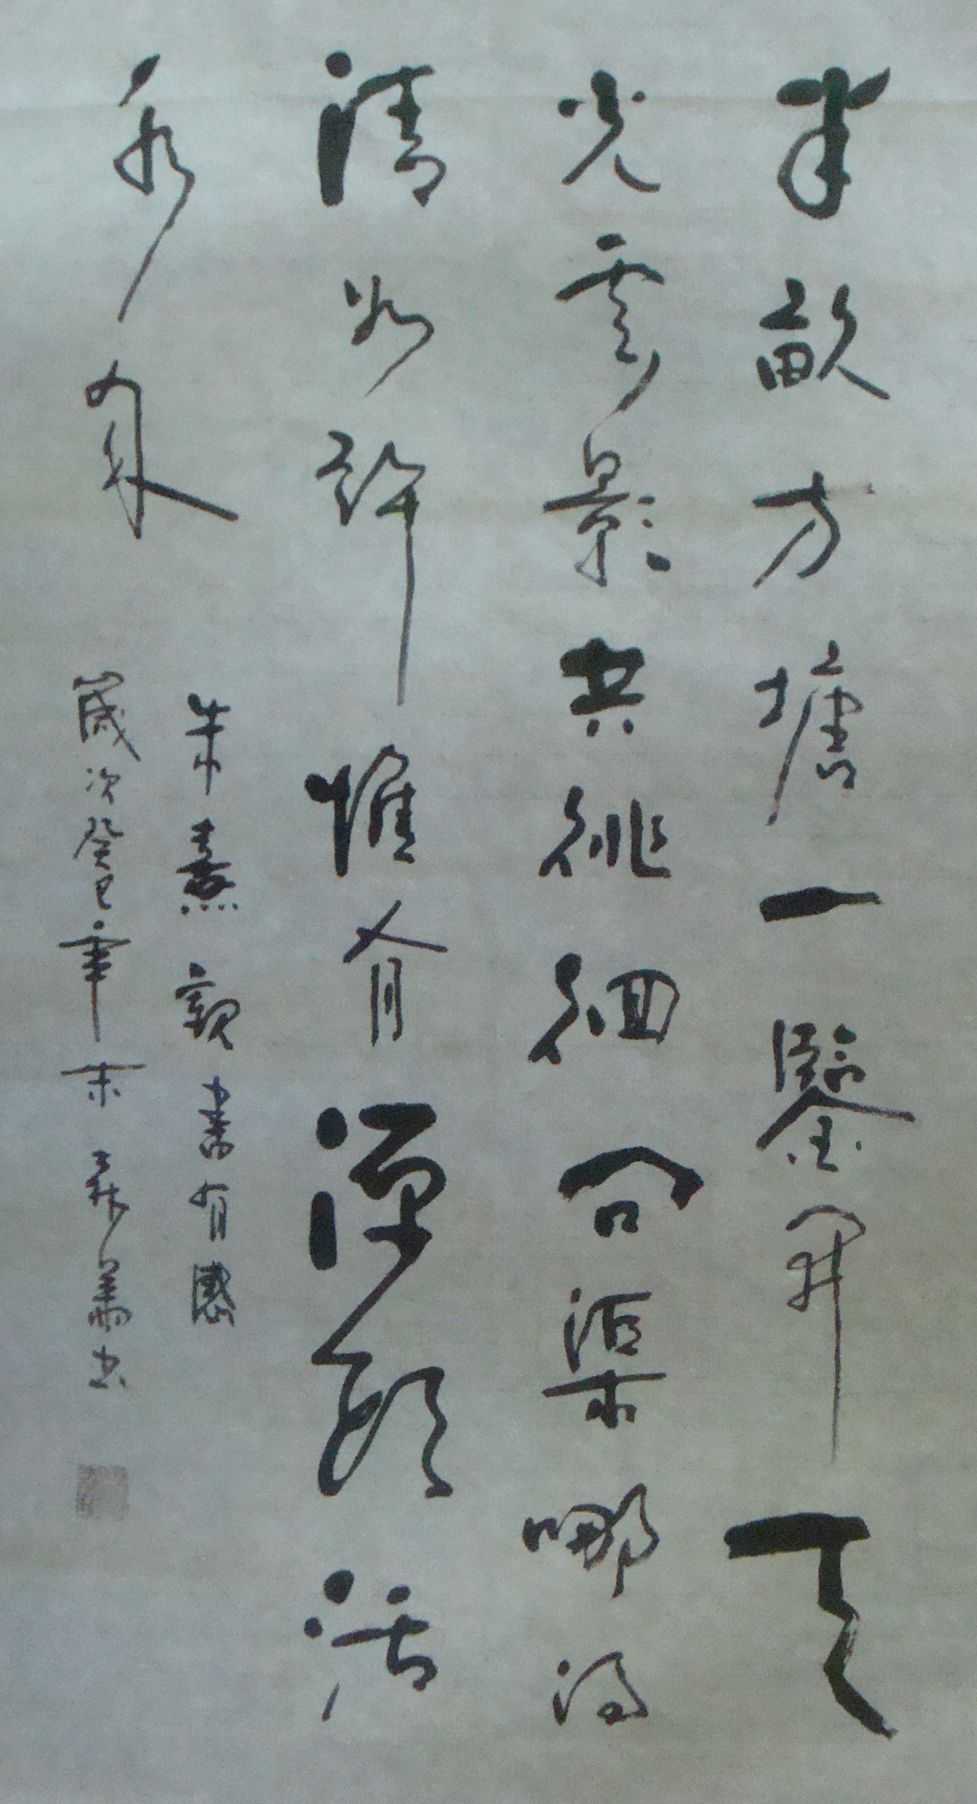 半畝方塘一鑒開天
光雲影共徘徊問渠哪得
清如許惟有源頭活
水來
朱熹觀書有感
歲次癸巳年末 書